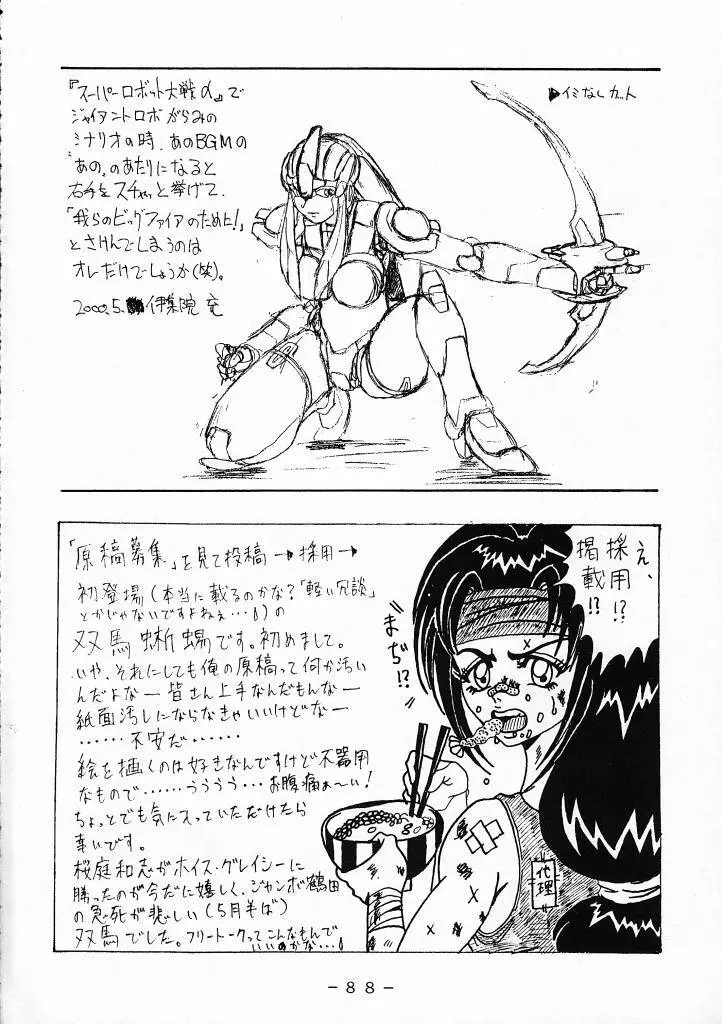 『スーパーロボット大戦α』で
ジャイアントロボがらみの
シナリオの時、あのBGMの
"あの"のあたりになると
右手をスチャッと挙げて、
「我らのビッグファイアのために!」
とさけんでしまうのは
オレだけでしょうか(笑)。
2000.5. 伊集院 竜
▶イミなしカット
「原稿募集」を見て投稿→採用→
初登場(本当に載るのかな?「軽い冗談」
とかじゃないですよねぇ…!)の
双馬 蜥蜴です。初めまして。
いや、それにしても俺の原稿って何か汚い
んだよなー皆さん上手なんだもんなー
紙面汚しにならなきゃいいけどなー
……不安だ……
絵を描くのは好きなんですけど不器用
なもので……ううぅぅ…お腹痛ぁ〜い!
ちょっとでも気に入っていただけたら
幸いです。
桜庭和志がホイス・グレイシーに
勝ったのが今だに嬉しく、ジャンボ鶴田
の急死が悲しい(5月半ば)
双馬でした。フリートークってこんなもんで
いいのかな…!
え、
採用!?
掲載!?
まぢ!?
代理
-88-